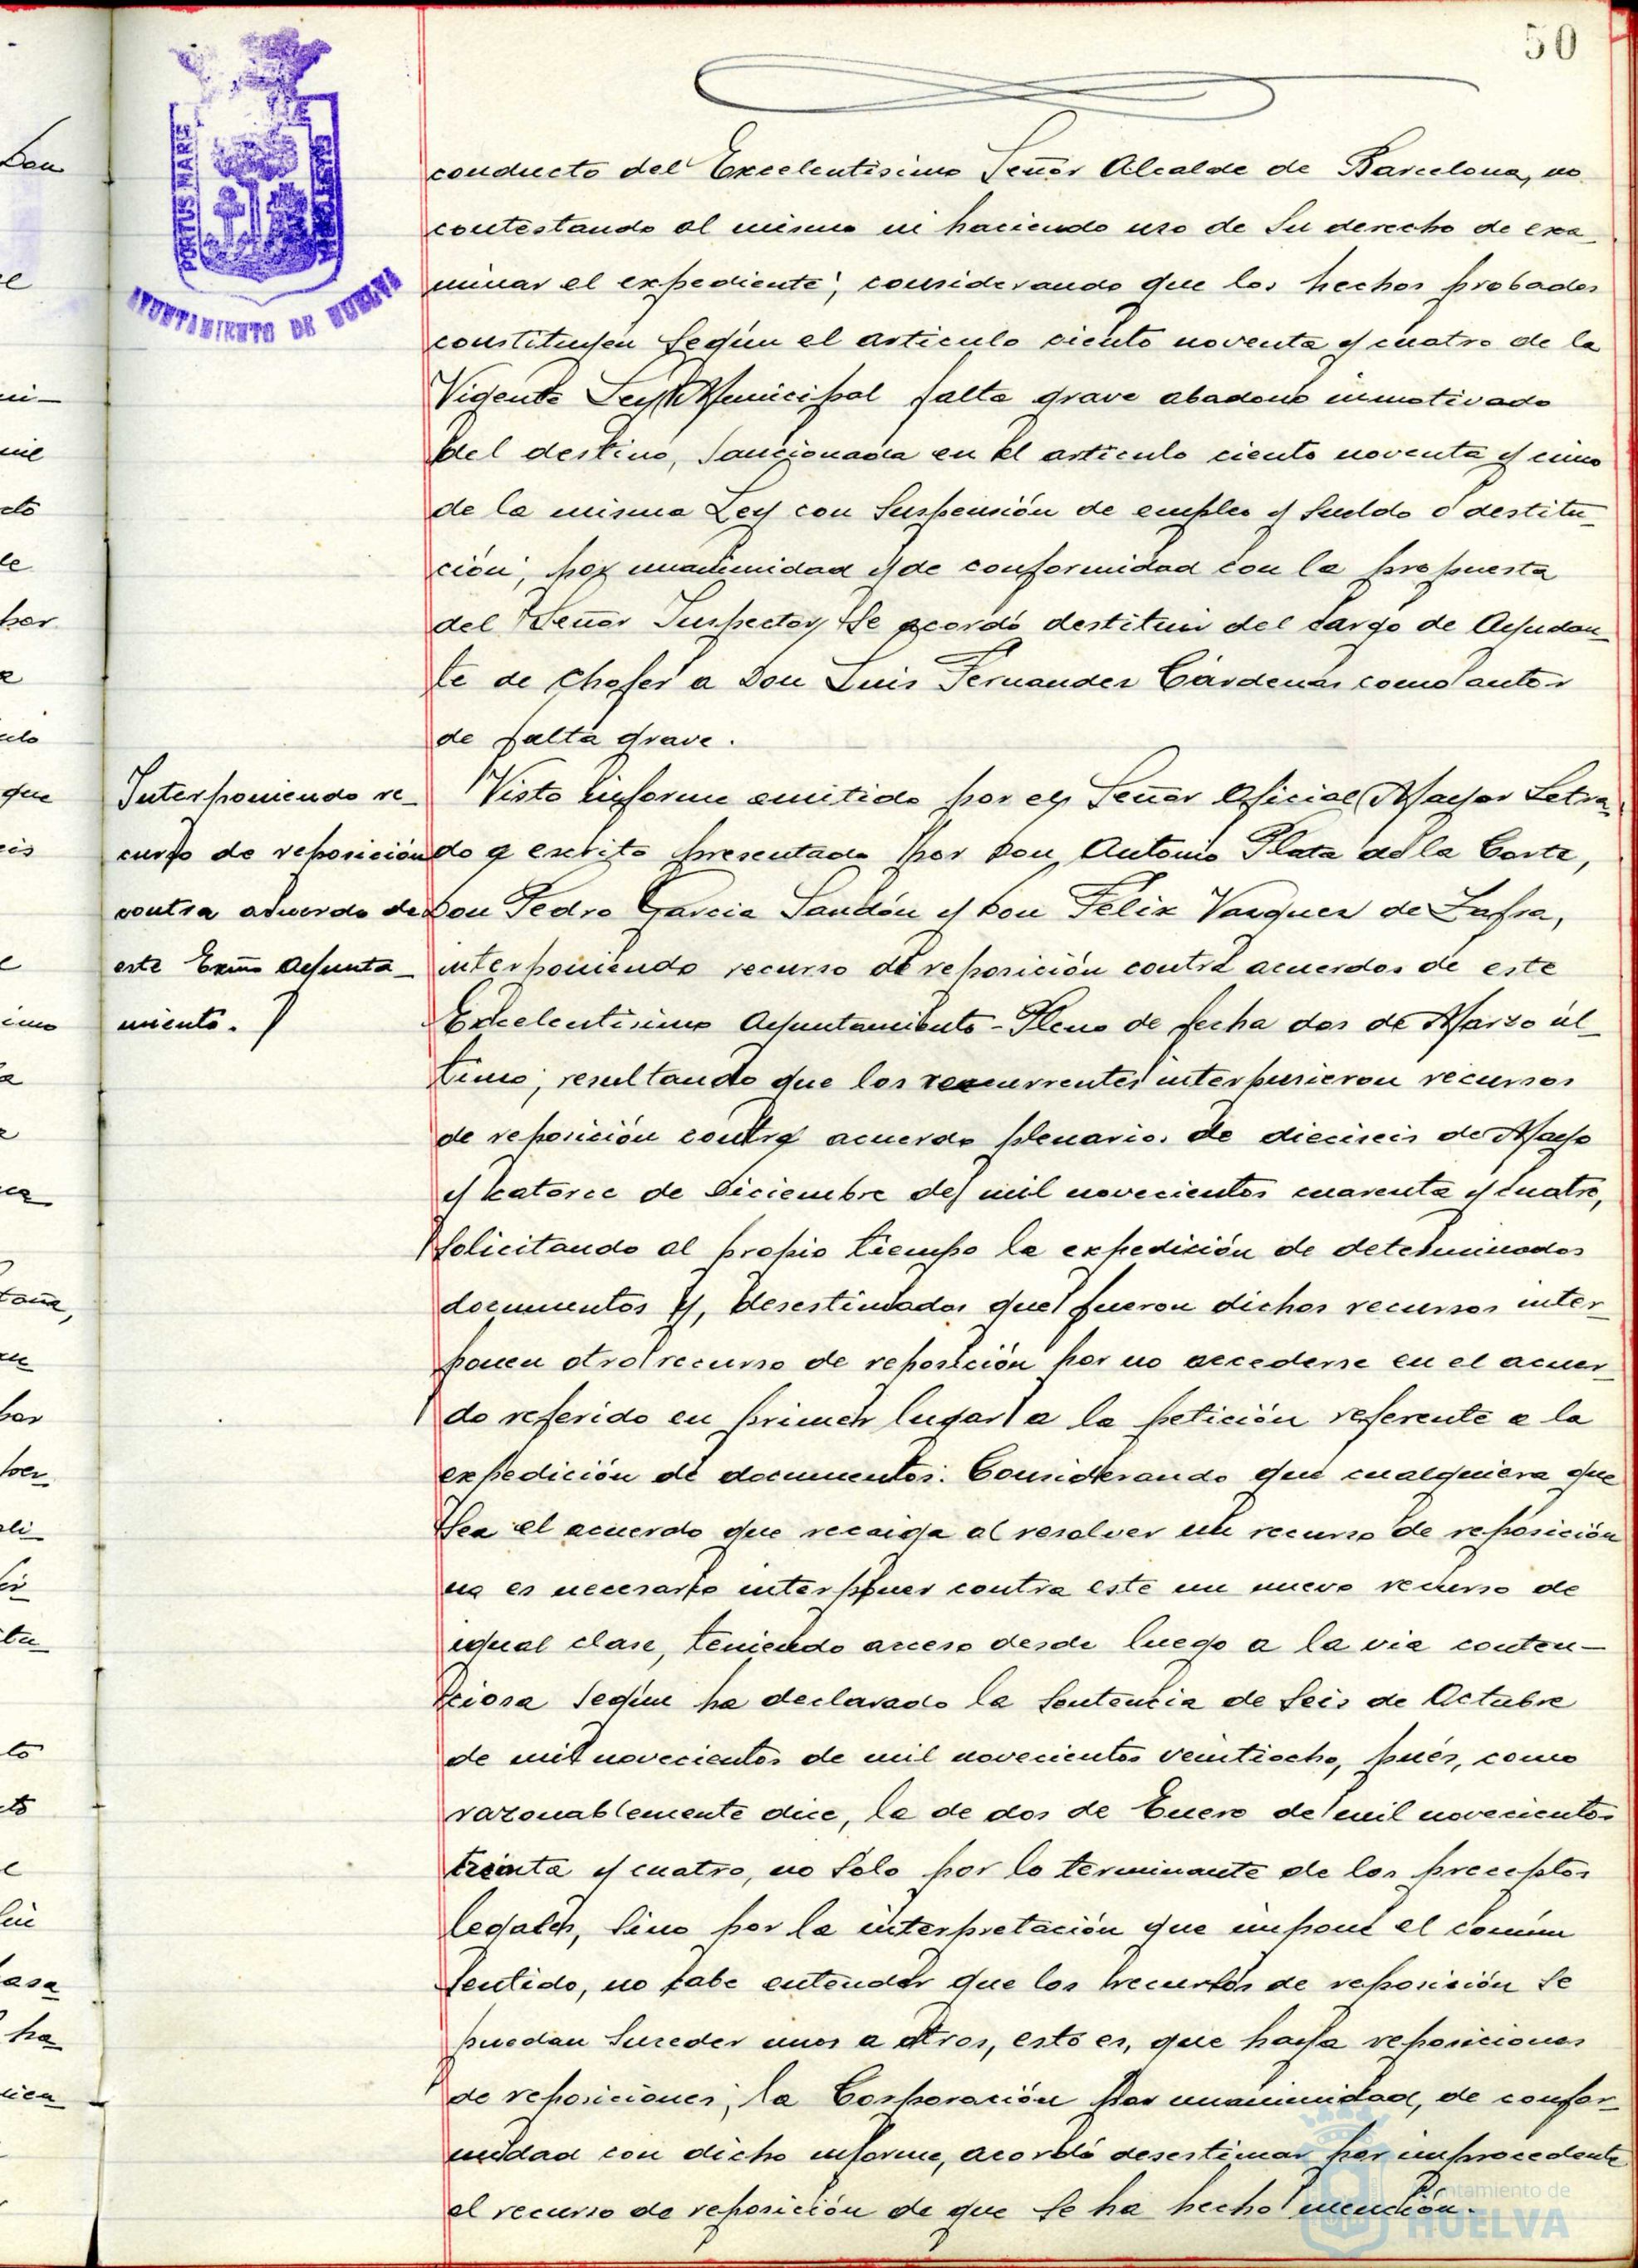 50
PORTUS MARIS
ET TERRAE CUSTODIA
AYUNTAMIENTO DE HUELVA
conducto del Excelentisimo Señor Alcalde de Barcelona, no
contestando al mismo ni haciendo uso de su derecho de exa-
minar el expediente; considerando que los hechos probados
constituyen según el articulo ciento noventa y cuatro de la
Vigente Ley Municipal falta grave abadono inmotivado
del destino, sancionada en el articulo ciento noventa y cinco
de la misma Ley con suspensión de empleo y sueldo o destitu-
ción; por unanimidad y de conformidad con la propuesta
del Señor Inspector, se acordó destituir del cargo de Ayudan-
te de chofer a Don Luis Fernandez Cárdenas como autor
de falta grave.
Interponiendo re-
curso de reposición
contra acuerdo de
este Exmo Ayunta-
miento.
Visto informe emitido por el Señor Oficial Mayor Letra-
do a escrito presentado por Don Antonio Plata de la Corte,
Don Pedro Garcia Sandón y Don Félix Vazquez de Zafra,
interponiendo recurso de reposición contra acuerdos de este
Excelentisimo Ayuntamiento-Pleno de fecha dos de Marzo úl-
timo; resultando que los recurrentes interpusieron recursos
de reposición contra acuerdo plenarios de dieciseis de Mayo
y catorce de Diciembre de mil novecientos cuarenta y cuatro,
solicitando al propio tiempo la expedición de determinados
documentos y, desestimados que fueron dichos recursos inter-
ponen otro recurso de reposición por no accederse en el acuer-
do referido en primer lugar a la petición referente a la
expedición de documentos. Considerando que cualquiera que
sea el acuerdo que recaiga al resolver un recurso de reposición
no es necesario interponer contra este un nuevo recurso de
igual clase, teniendo acceso desde luego a la via conten-
ciosa según ha declarado la Sentencia de seis de Octubre
de mil novecientos de mil novecientos veintiocho, pués, como
razonablemente dice, la de dos de Enero de mil novecientos
treinta y cuatro, no sólo por lo terminante de los preceptos
legales, sino por la interpretación que impone el común
sentido, no cabe entender que los recursos de reposición se
puedan suceder unos a otros, esto es, que haya reposiciones
de reposiciones; la Corporación por unanimidad, de confor-
midad con dicho informe, acordó desestimar por improcedente
el recurso de reposición de que se ha hecho mención.
Ayuntamiento de
HUELVA